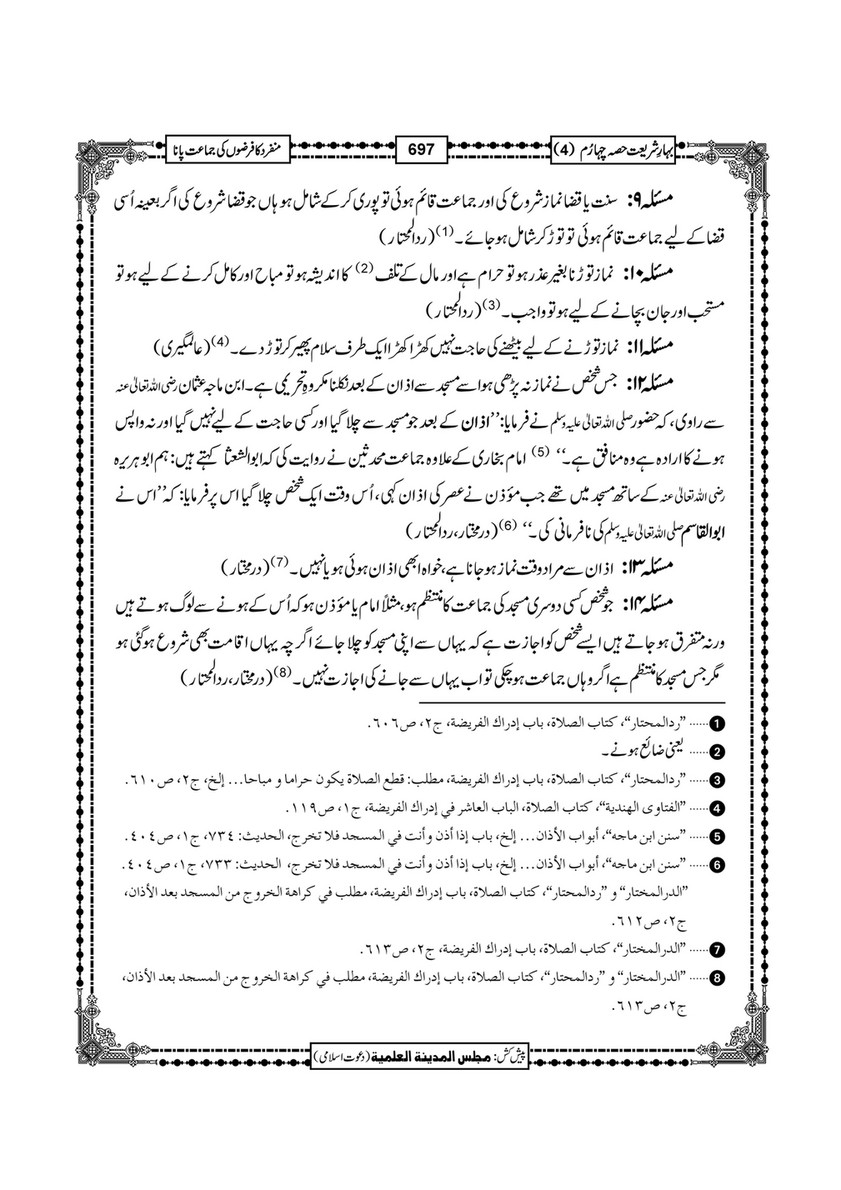 بہارِ شریعت حصہ چہارم (4)
697
منفرد کا فرضوں کی جماعت پانا
مسئلہ ۹: سنت یا قضا نماز شروع کی اور جماعت قائم ہوئی تو پوری کر کے شامل ہو ہاں جو قضا شروع کی اگر بعینہ اُسی
قضا کے لیے جماعت قائم ہوئی تو توڑ کر شامل ہو جائے۔ (1) (ردالمحتار)
مسئلہ ۱۰: نماز توڑنا بغیر عذر ہو تو حرام ہے اور مال کے تلف (2) کا اندیشہ ہو تو مباح اور کامل کرنے کے لیے ہو تو
مستحب اور جان بچانے کے لیے ہو تو واجب۔ (3) (ردالمحتار)
مسئلہ ۱۱: نماز توڑنے کے لیے بیٹھنے کی حاجت نہیں کھڑا کھڑا ایک طرف سلام پھیر کر توڑ دے۔ (4) (عالمگیری)
مسئلہ ۱۲: جس شخص نے نماز نہ پڑھی ہو اسے مسجد سے اذان کے بعد نکلنا مکروہِ تحریمی ہے۔ ابن ماجہ عثمان رضی اللہ تعالیٰ عنہ
سے راوی، کہ حضور صلی اللہ تعالیٰ علیہ وسلم نے فرمایا: ’’اذان کے بعد جو مسجد سے چلا گیا اور کسی حاجت کے لیے نہیں گیا اور نہ واپس
ہونے کا ارادہ ہے وہ منافق ہے۔‘‘ (5) امام بخاری کے علاوہ جماعت محدثین نے روایت کی کہ ابوالشعثا کہتے ہیں: ہم ابو ہریرہ
رضی اللہ تعالیٰ عنہ کے ساتھ مسجد میں تھے جب مؤذن نے عصر کی اذان کہی، اُس وقت ایک شخص چلا گیا اس پر فرمایا: کہ ’’اس نے
ابوالقاسم صلی اللہ تعالیٰ علیہ وسلم کی نافرمانی کی۔‘‘ (6) (درمختار، ردالمحتار)
مسئلہ ۱۳: اذان سے مراد وقت نماز ہو جانا ہے، خواہ ابھی اذان ہوئی ہو یا نہیں۔ (7) (درمختار)
مسئلہ ۱۴: جو شخص کسی دوسری مسجد کی جماعت کا منتظم ہو، مثلاً امام یا مؤذن ہو کہ اُس کے ہونے سے لوگ ہوتے ہیں
ورنہ متفرق ہو جاتے ہیں ایسے شخص کو اجازت ہے کہ یہاں سے اپنی مسجد کو چلا جائے اگرچہ یہاں اقامت بھی شروع ہو گئی ہو
مگر جس مسجد کا منتظم ہے اگر وہاں جماعت ہو چکی تو اب یہاں سے جانے کی اجازت نہیں۔ (8) (درمختار، ردالمحتار)
1 ...... ”ردالمحتار“، كتاب الصلاة، باب إدراك الفريضة، ج٢، ص٦٠٦.
2 ...... یعنی ضائع ہونے۔
3 ...... ”ردالمحتار“، كتاب الصلاة، باب إدراك الفريضة، مطلب: قطع الصلاة يكون حراما و مباحا... إلخ، ج٢، ص٦١٠.
4 ...... ”الفتاوى الهندية“، كتاب الصلاة، الباب العاشر في إدراك الفريضة، ج١، ص١١٩.
5 ...... ”سنن ابن ماجه“، أبواب الأذان... إلخ، باب إذا أذن وأنت في المسجد فلا تخرج، الحديث: ٧٣٤، ج١، ص٤٠٤.
6 ...... ”سنن ابن ماجه“، أبواب الأذان... إلخ، باب إذا أذن وأنت في المسجد فلا تخرج، الحديث: ٧٣٣، ج١، ص٤٠٤.
”الدرالمختار“ و ”ردالمحتار“، كتاب الصلاة، باب إدراك الفريضة، مطلب في كراهة الخروج من المسجد بعد الأذان،
ج٢، ص٦١٢.
7 ...... ”الدرالمختار“، كتاب الصلاة، باب إدراك الفريضة، ج٢، ص٦١٣.
8 ...... ”الدرالمختار“ و ”ردالمحتار“، كتاب الصلاة، باب إدراك الفريضة، مطلب في كراهة الخروج من المسجد بعد الأذان،
ج٢، ص٦١٣.
پیش کش: مجلس المدینة العلمیة (دعوت اسلامی)